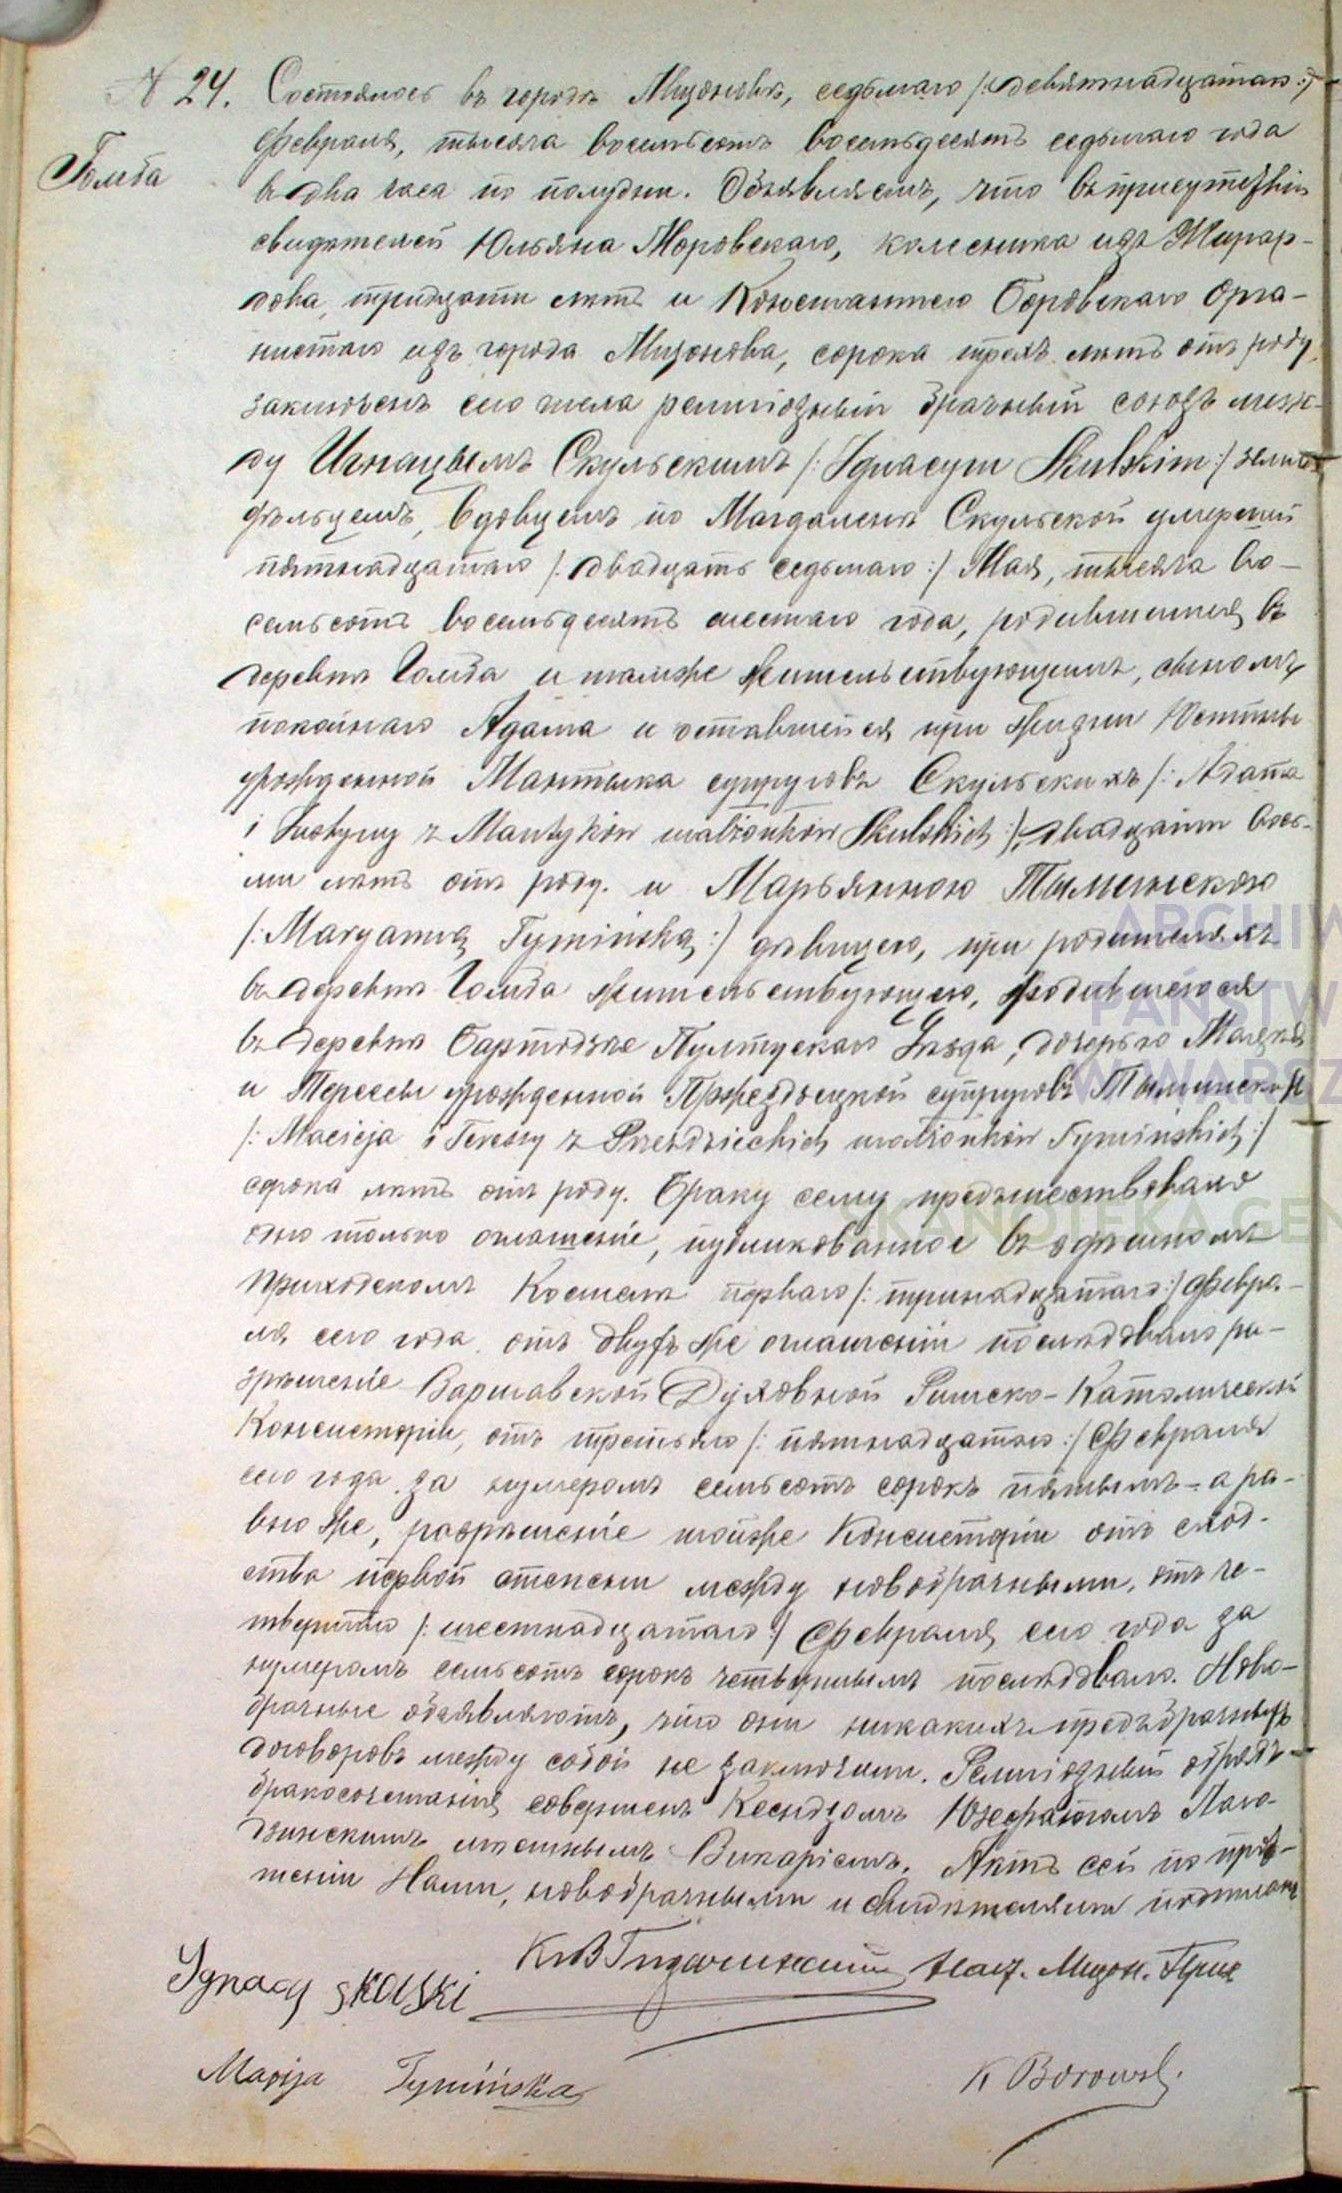 N 24.
Голба
Состоялось въ городѣ Мщоновѣ, седьмаго /: девятнадцатаго :/
Февраля, тысяча восемьсотъ восемьдесятъ седьмаго года
въ два часа по полудни. Объявляемъ, что въ присутствіи
свидѣтелей Юльяна Моровскаго, колесника изъ Жирар-
дова, тридцати лѣтъ и Константего Боровскаго Орга-
нистаго изъ города Мщонова, сорока трехъ лѣтъ отъ роду,
заключенъ сего числа религіозный брачный союзъ меж-
ду Игнацымъ Скульскимъ /: Ignacym Skulskim :/ земле-
дѣльцемъ, вдовцемъ по Магдаленѣ Скульской умершей
пятнадцатаго /: двадцать седьмаго :/ Мая, тысяча во-
семьсотъ восемьдесятъ шестаго года, родившимся въ
деревнѣ Голба и тамже жительствующимъ, сыномъ
покойнаго Адама и оставшейся при жизни Юстины
урожденной Мантыка супруговъ Скульскихъ /: Adama
i Justyny z Mantyków małżonków Skulskich :/, двадцати вось-
ми лѣтъ отъ роду. и Марьянною Тыминскою
/: Maryanną Tymińską :/ дѣвицею, при родителяхъ
въ деревнѣ Голба жительствующею, родившеюся
въ деревнѣ Пултускаго Уѣзда, дочерью Мацѣя
и Терессы урожденной Пржездзецкой супруговъ Тыминскихъ
/: Macieja i Teressy z Przezdzieckich małżonków Tymińskich :/
сорока лѣтъ отъ роду. Браку сему предшествовало
одно только оглашеніе, публикованное въ здѣшномъ
Приходскомъ Костелѣ перваго /: тринадцатаго :/ Февра-
ля сего года. отъ двухъ же оглашеній послѣдовало ра-
зрѣшеніе Варшавской Духовной Римско-Католической
Консисторіи, отъ третьяго /: пятнадцатаго :/ Февраля
сего года за нумеромъ семьсотъ сорокъ пятымъ - а ра-
вно же, разрѣшеніе тойже Консисторіи отъ
ства первой степени между новобрачными, отъ че-
твертаго /: шестнадцатаго :/ Февраля сего года за
нумеромъ семьсотъ сорокъ четвертымъ послѣдовало. Ново-
брачные объявляютъ, что они никакихъ предъбрачныхъ
договоровъ между собой не заключили. Религіозный обрядъ
бракосочетанія совершенъ Ксендзомъ Юзефатомъ Лаго-
дзинскимъ мѣстнымъ Викаріемъ. Актъ сей по проч-
теніи Нами, новобрачными и свидѣтелями подписанъ
Кс В Мщон. Прих
Ignacy skolski
Marija Tymińska
K Borowski.